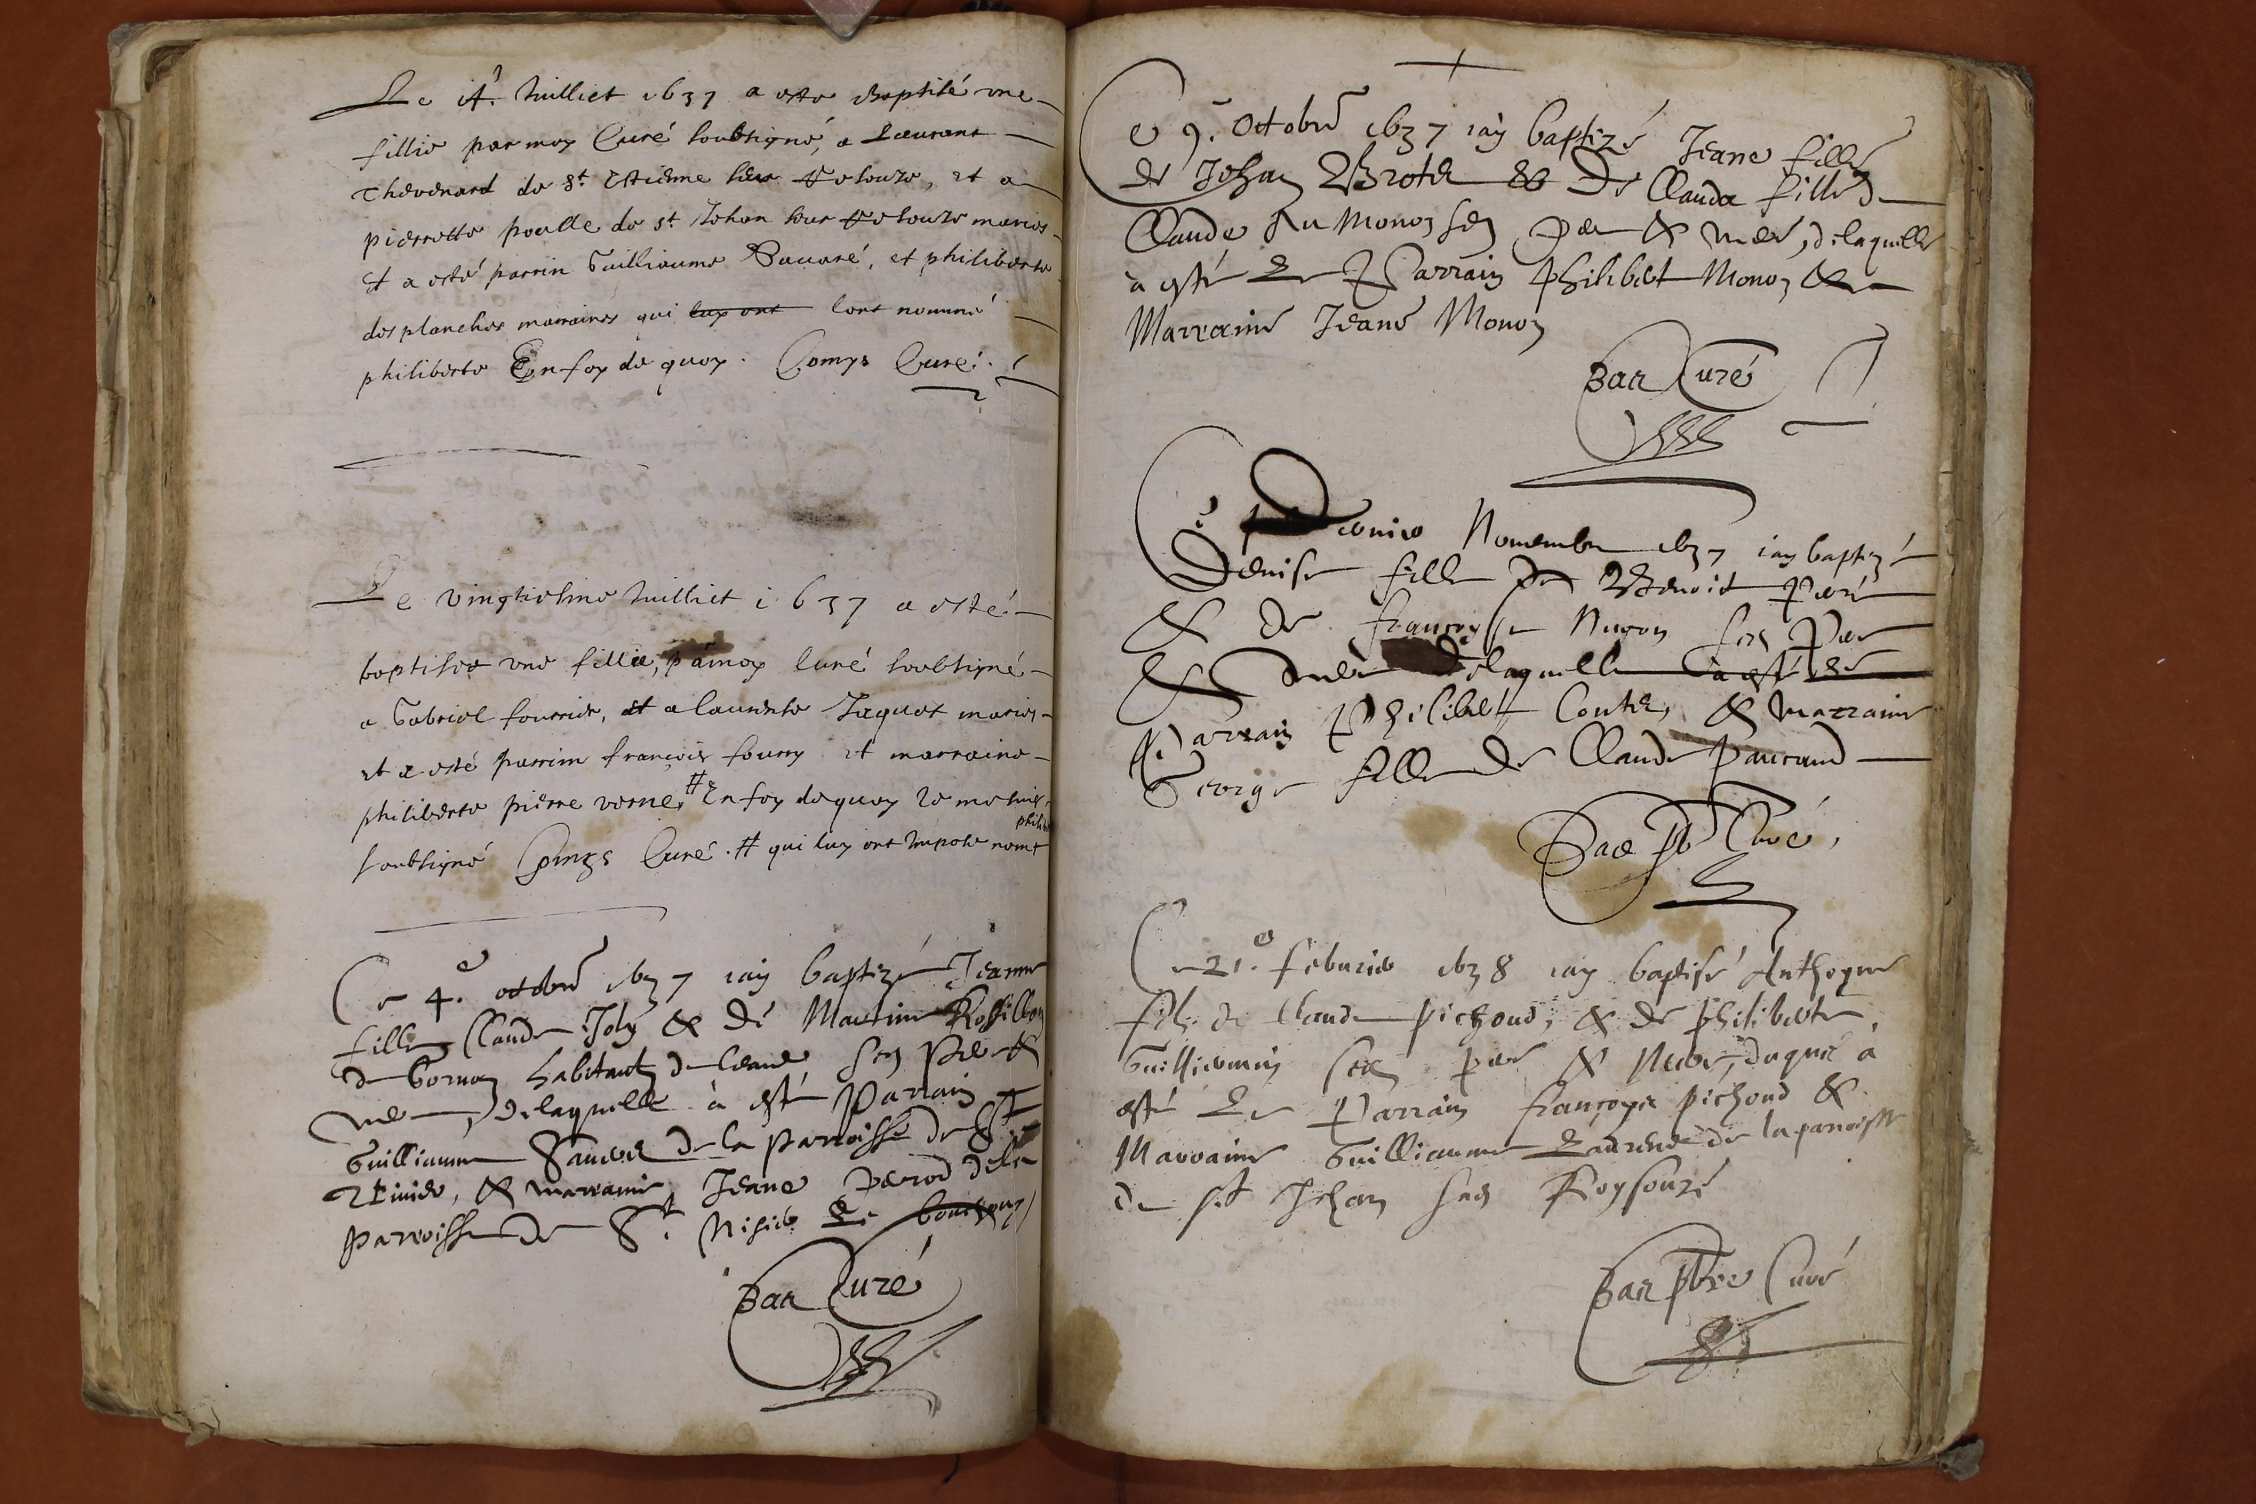 Le juilliet 1637 a este Baptisé une
fillie par moy Curé soubsigné, a Laurent
Thevenard de St. Estienne sur Resouze, et a
pierrette poulle de St. Jehan sur Resouze maries
Et a esté parrin Guilliaume Savaré, et philiberte
desplanches marraines qui luy ont lont nommé
philiberte En foy de quoy. Comys Curé.
Le vingtiesme Juilliet 1637 a esté
baptisee une fillie, par moy Curé soubsigné
a Gabriel fourrier, et a laurente Jaquet maries
et a esté parrin françois fourry et marraine
philiberte pierre verne, # En foy dequoy Je me suis
soubsigné Comys Curé. # qui luy ont Impose nom
Ce 4.e octobre 1637 iay baptizé Jeanne
fille Claude Joly & de Martine Rossillon
de habitants de ses Pere &
mere, delaquelle à esté Parrain
Guilliaume de la Parroisse de St
& marraine Jeane Perrod dela
Parroisse de St. Nisier le bouchoux
Bar Curé
Ce 9. Octobre 1637 iay baptizé Jeane fille
de Jehan Broter & De Clauda fille d
Claude Du Monoz ses Pere & mere, delaquelle
à esté Le Parrain Philibert Monoz & la
Marraine Jeane Monoz
Bar Curé
Ce Nouembre 1637 iay baptizé
Denise fille De Benoit
& de françoyse Nugon ses Pere
& mere delaquelle à esté Le
Parrain Philibert Conter, & marraine
George fille de Claude Paucand
Bar pb Curé,
Ce 21.e feburier 1638 iay baptisé Anthoyne
filz de Claude Pichoud, & de Philiberte
Guilliermin ses pere & Mere, duquel a
esté Le Parrain françoys pichoud &
Marraine Guilliaume Laurence de la parroisse
de st Jehan sus Reysouze
Bar Pbre Curé